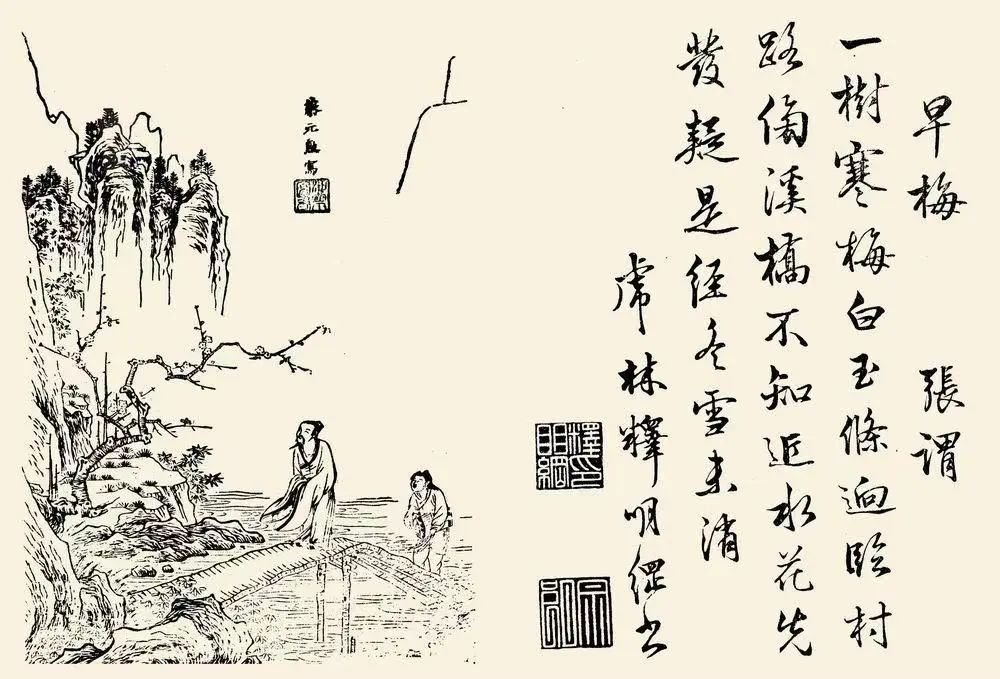 早梅 張謂
一樹寒梅白玉條逈臨村
路傍溪橋不知近水花先
發疑是經冬雪未消
虎林釋明綱書
釋印明綱
蔡元勳寫